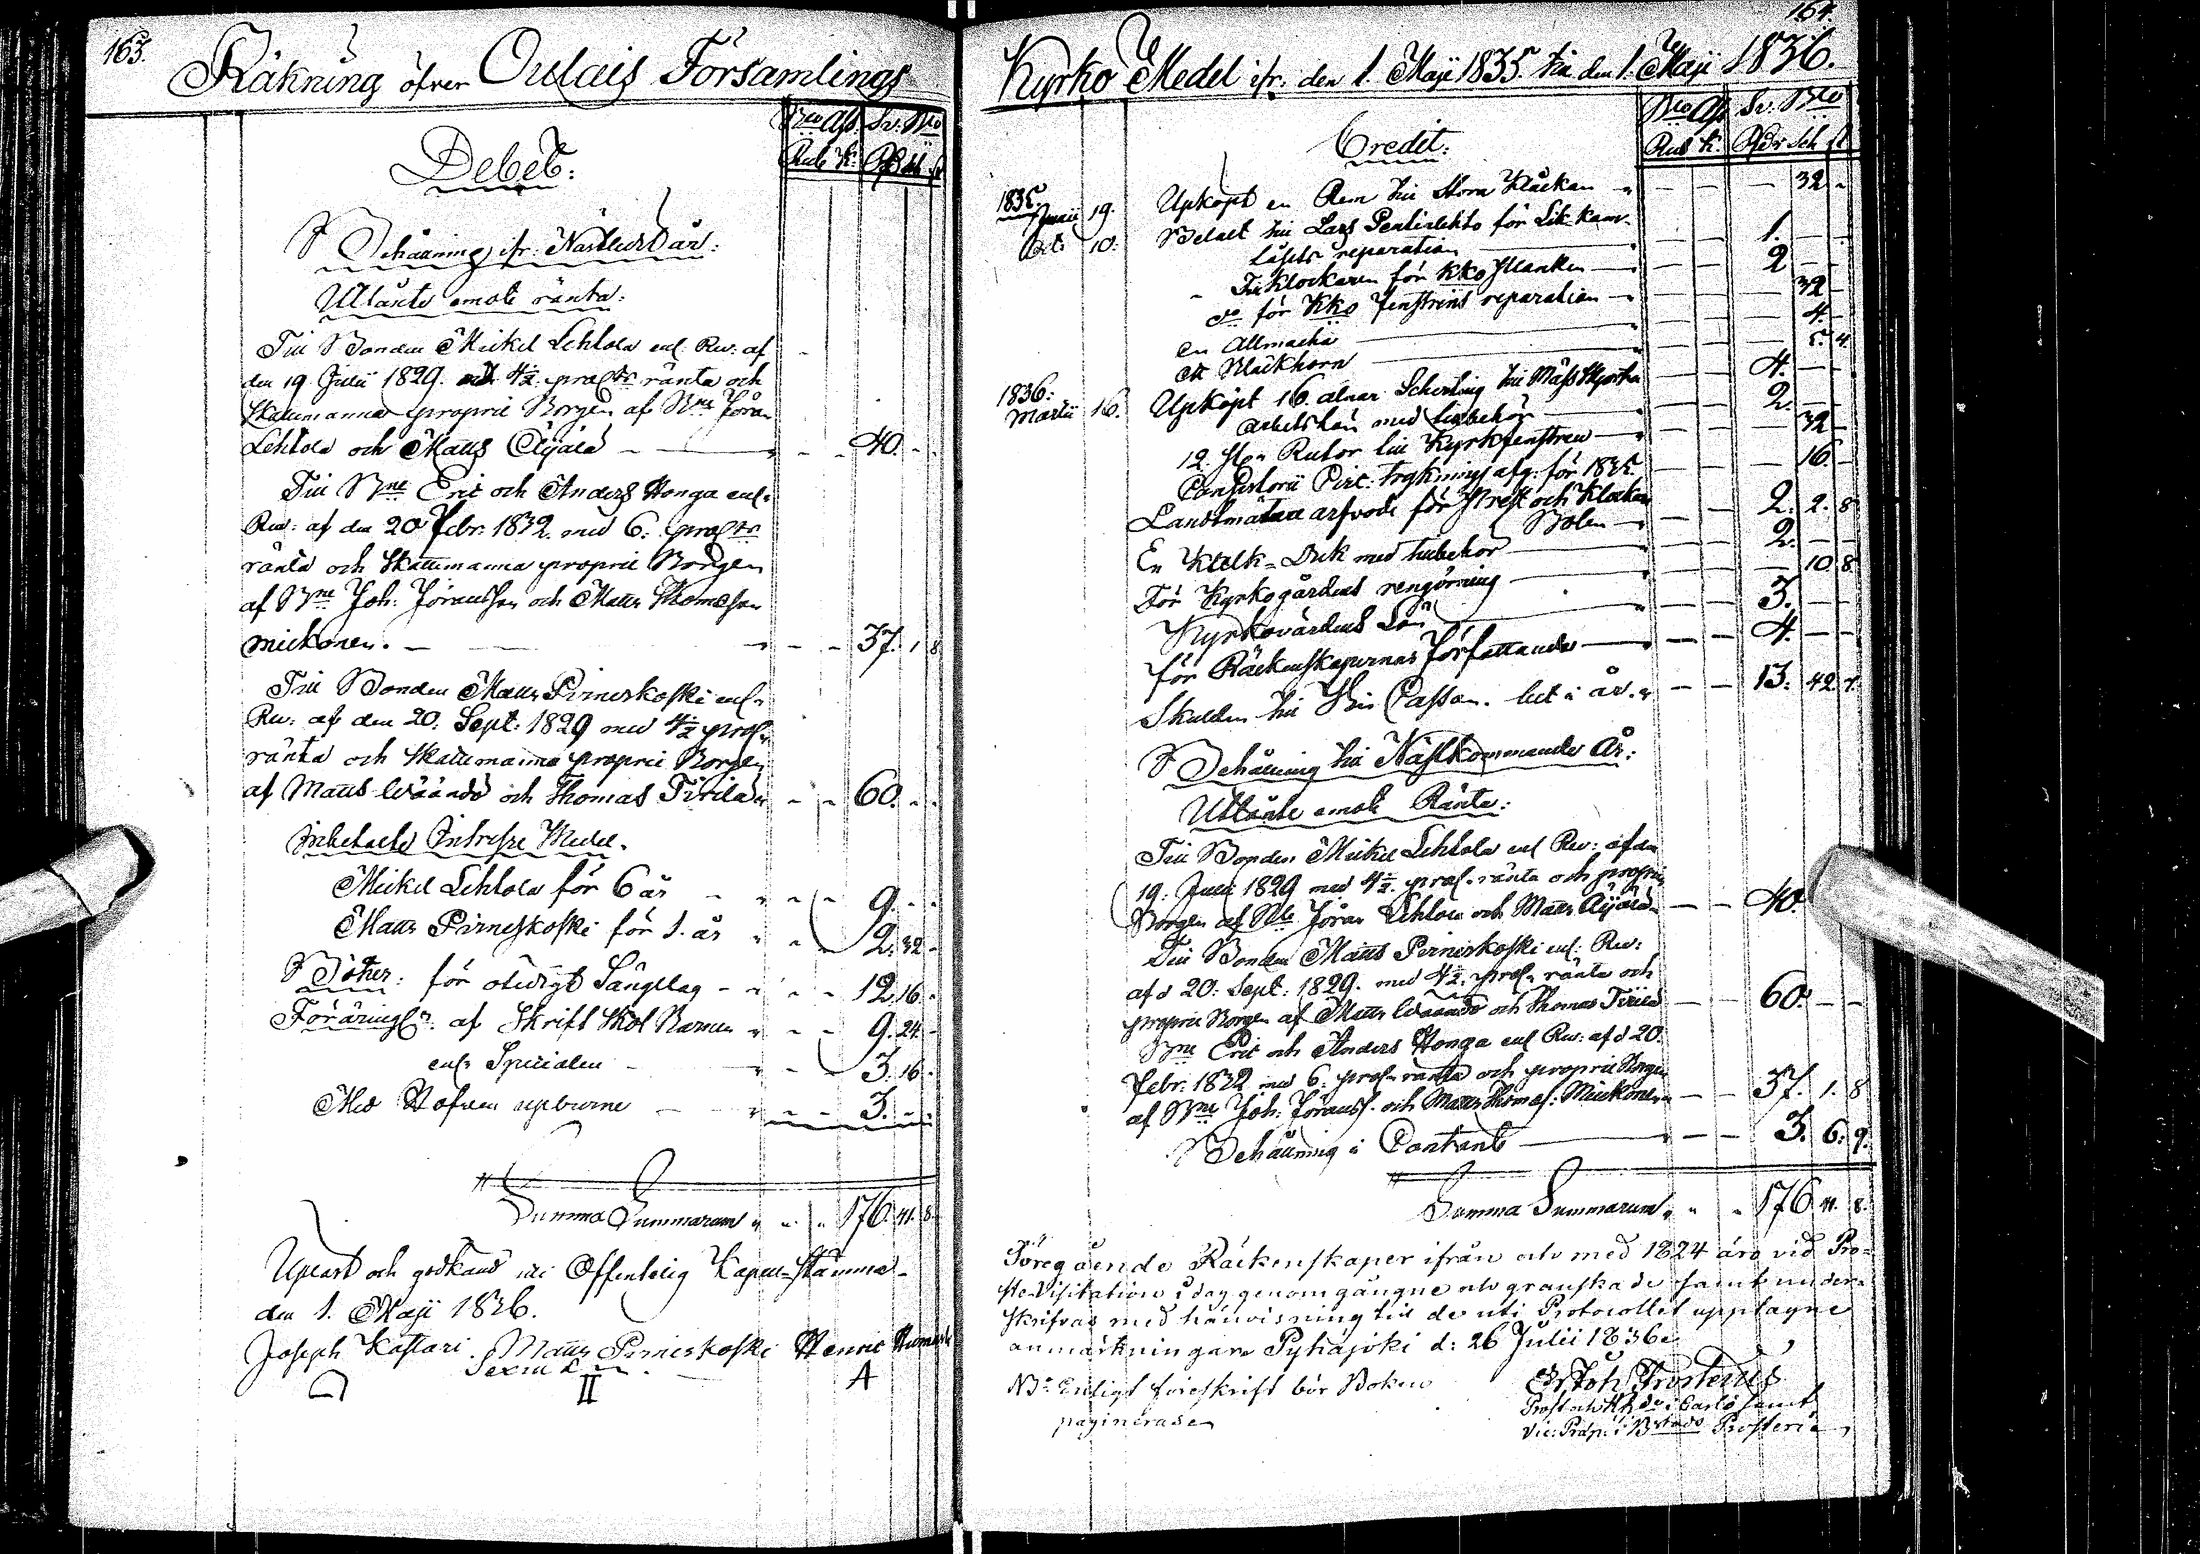 163.
Räkning öfver Oulais Församlings
Bco Ass. Sv. Bco
Rub. K. Rdr sch. st.
Debet:
Behållning ifr. Nästledit år:
Utlånte emot ränta:
Till Bonden Mickel Lehtola enl. Rev: af
den 19 Julii 1829. med 4½ proCto ränta och
skattmanna proprie Borgen af Bne Jöran
Lehtola och Matts Äijälä - 40. -
Till Bne Eric och Anders Honga enl.
Rev: af den 20 Febr: 1832. med 6. proCto
ränta och skattmanna proprie Borgen
af Bne Joh: Jöransson och Matts Thomasson
Mickonen. - 37. 1 8
Till Bonden Matts Pirneskoski enl.
Rev: af den 20. Sept: 1829 med 4½ proC.
ränta och skattmanna proprie Borgen
af Matts Wäändö och Thomas Tirilä - 60. -
Inbetalte Intresse Medel.
Mickel Lehtola för 6 år - 9. -
Matts Pirneskoski för 1. år - 2. 32 -
Böter: för otidigt Sänglag - 12. 16 -
Föräringar: af Skrift Skol Barnen - 9. 24 -
enl. Specialen - 3. 16 -
Med Hofven upburne - 3. -
Summa Summarum 176. 41. 8.
Upläst och godkänd uti Offentelig Kapell-stämma
den 1. Maji 1836.
Joseph Kastari. Matts Pirneskoski Henric
Sexm
II A
164.
Kyrko Medel ifr. den 1. Maji 1835. till den 1. Maji 1836.
Bco Ass Sv. Bco
Rub K. Rdr sch st.
Credit:
1835.
Junii 19. Upköpt en Rem till Stora Klåckan - 32 -
Oct. 10. Betalt till Lars Pentiolehto för Lik-kam-
låsets reparation - 1. -
Till Klockaren för Kko Planken - 2 -
do för Kko fenstrens reparation - 32 -
En Allmacka - 4. -
Ett Bläckhorn - 5. 4.
1836:
Martii 16. Upköpt 16. alnar Scherting till Mäss Skjorta - 4. -
arbetslön med tillbehör - 2. -
12. st. Rutor till Kyrkfenstren - 32 -
Consistorii Circ. tryknings afg: för 1835. - 16. -
Landtmätare arfvode för Prest och Klockare
Bolen - 2. 2. 8
En Kalk-Duk med tillbehör - 2. -
För Kyrkogårdens rengörning - 10 8
Kyrkovärdens Lön - 3. -
för Räckenskapernas författande - 4. -
Skulden till Cassan. bet. i år. - 13. 42 7.
Behållning till Nästkommande År:
Utlånte emot Ränta:
Till Bonden Mickel Lehtola enl Rev: af den
19. Julii 1829 med 4½. proC. ränta och proprie
Borgen af Bne Jöran Lehtola och Matts Äijälä - 40.
Till Bonden Matts Pirneskoski enl. Rev:
af d 20: Sept: 1829. med 4½. proC. ränta och
proprie Borgen af Matts Wäändö och Thomas Tirilä - 60. -
Bne Eric och Anders Honga enl Rev: af d 20.
Febr. 1832 med 6. proC. ränta och proprie Borgen
af Bne Joh: Jöranss. och Matts Thomas: Mickonen - 37. 1. 8
Behållning i Contant - 3. 6. 9.
Summa Summarum 176 41. 8.
Föregående Räckenskaper ifrån och med 1824 äro vid Pro-
ste-Visitation i dag genomgångne och granskade samt under-
skrifvas med hänvisning till de uti Protocollet upptagne
anmärkningar. Pyhäjoki d: 26 Julii 1836.
NB. Enligt föreskrift bör Boken
pagineras.
Joh. Frosterus
Prost och Khde i Carlö samt
Vic. Præp. i Bstads Prosteri